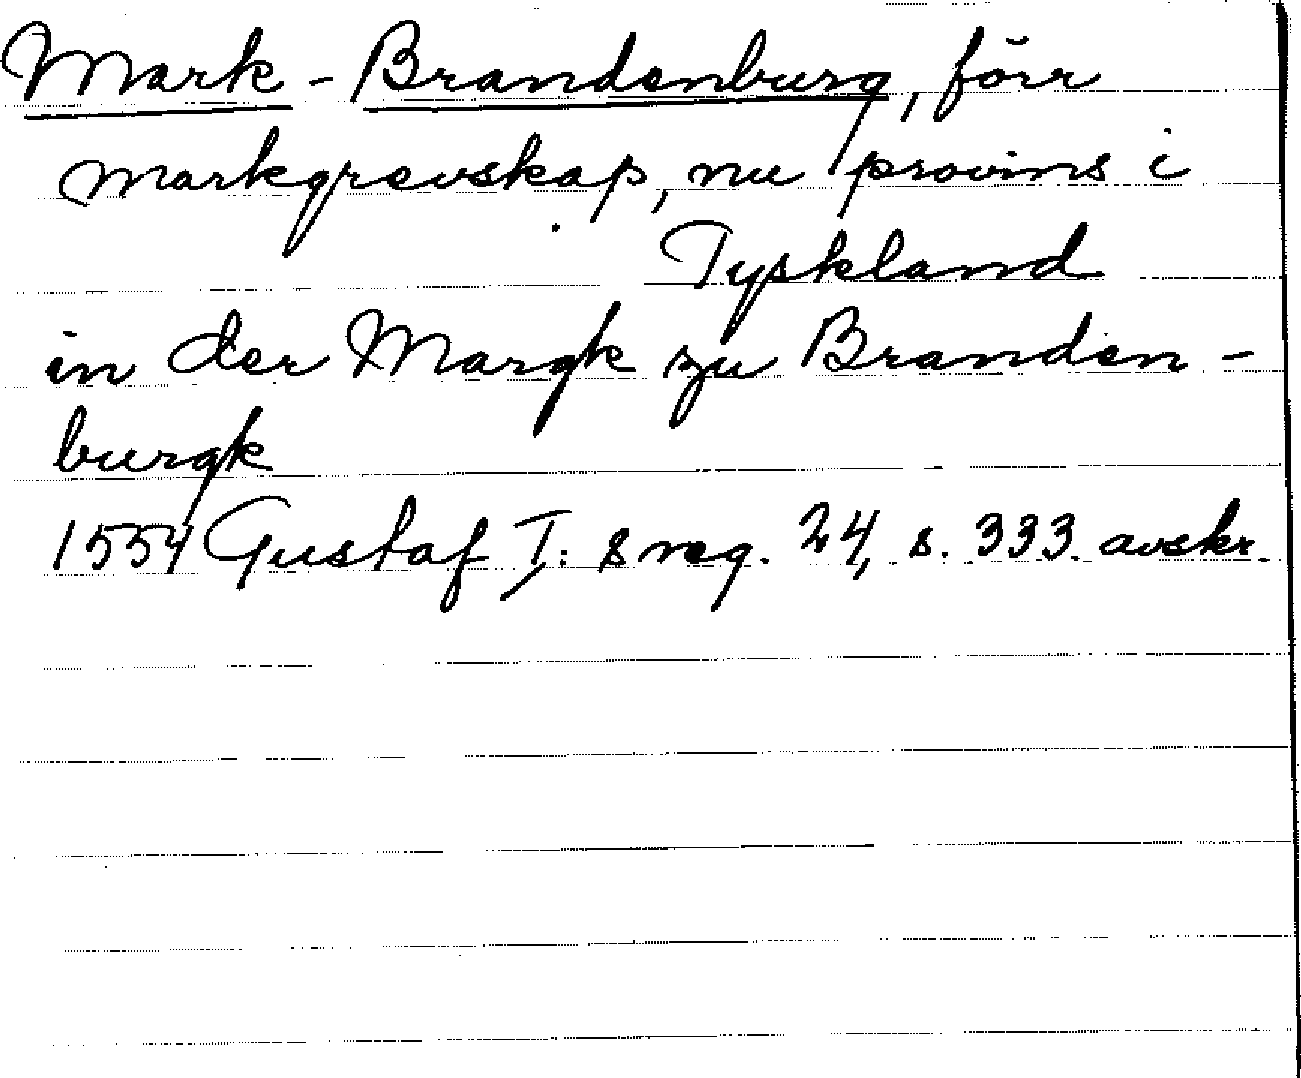 Mark-Brandenburg, förr
markgrevskap, nu provins i
Tyskland
in der Margk zu Branden-
burgk
1554 Gustaf I:s reg. 24, s. 333. avskr.